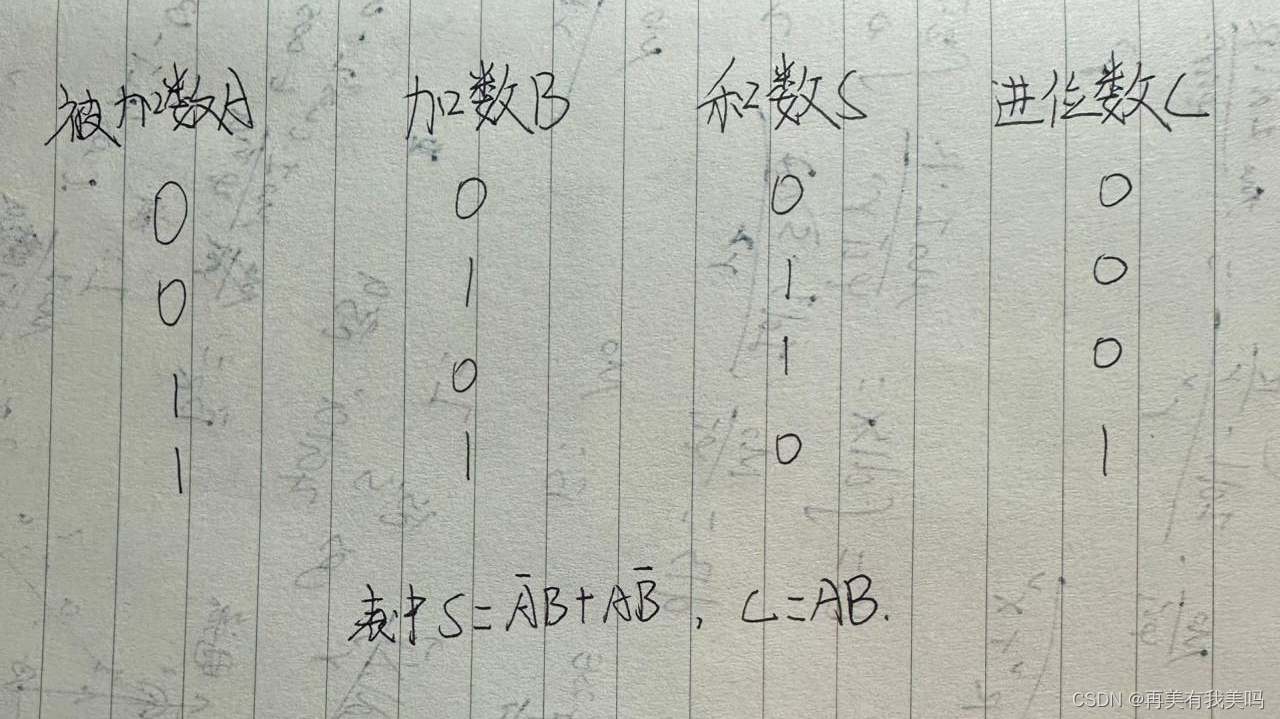 被加数A 加数B 和数S 进位数C
0 0 0 0
0 1 1 0
1 0 1 0
1 1 0 1
表中 S=A̅B+AB̅, C=AB.
CSDN @再美有我美吗